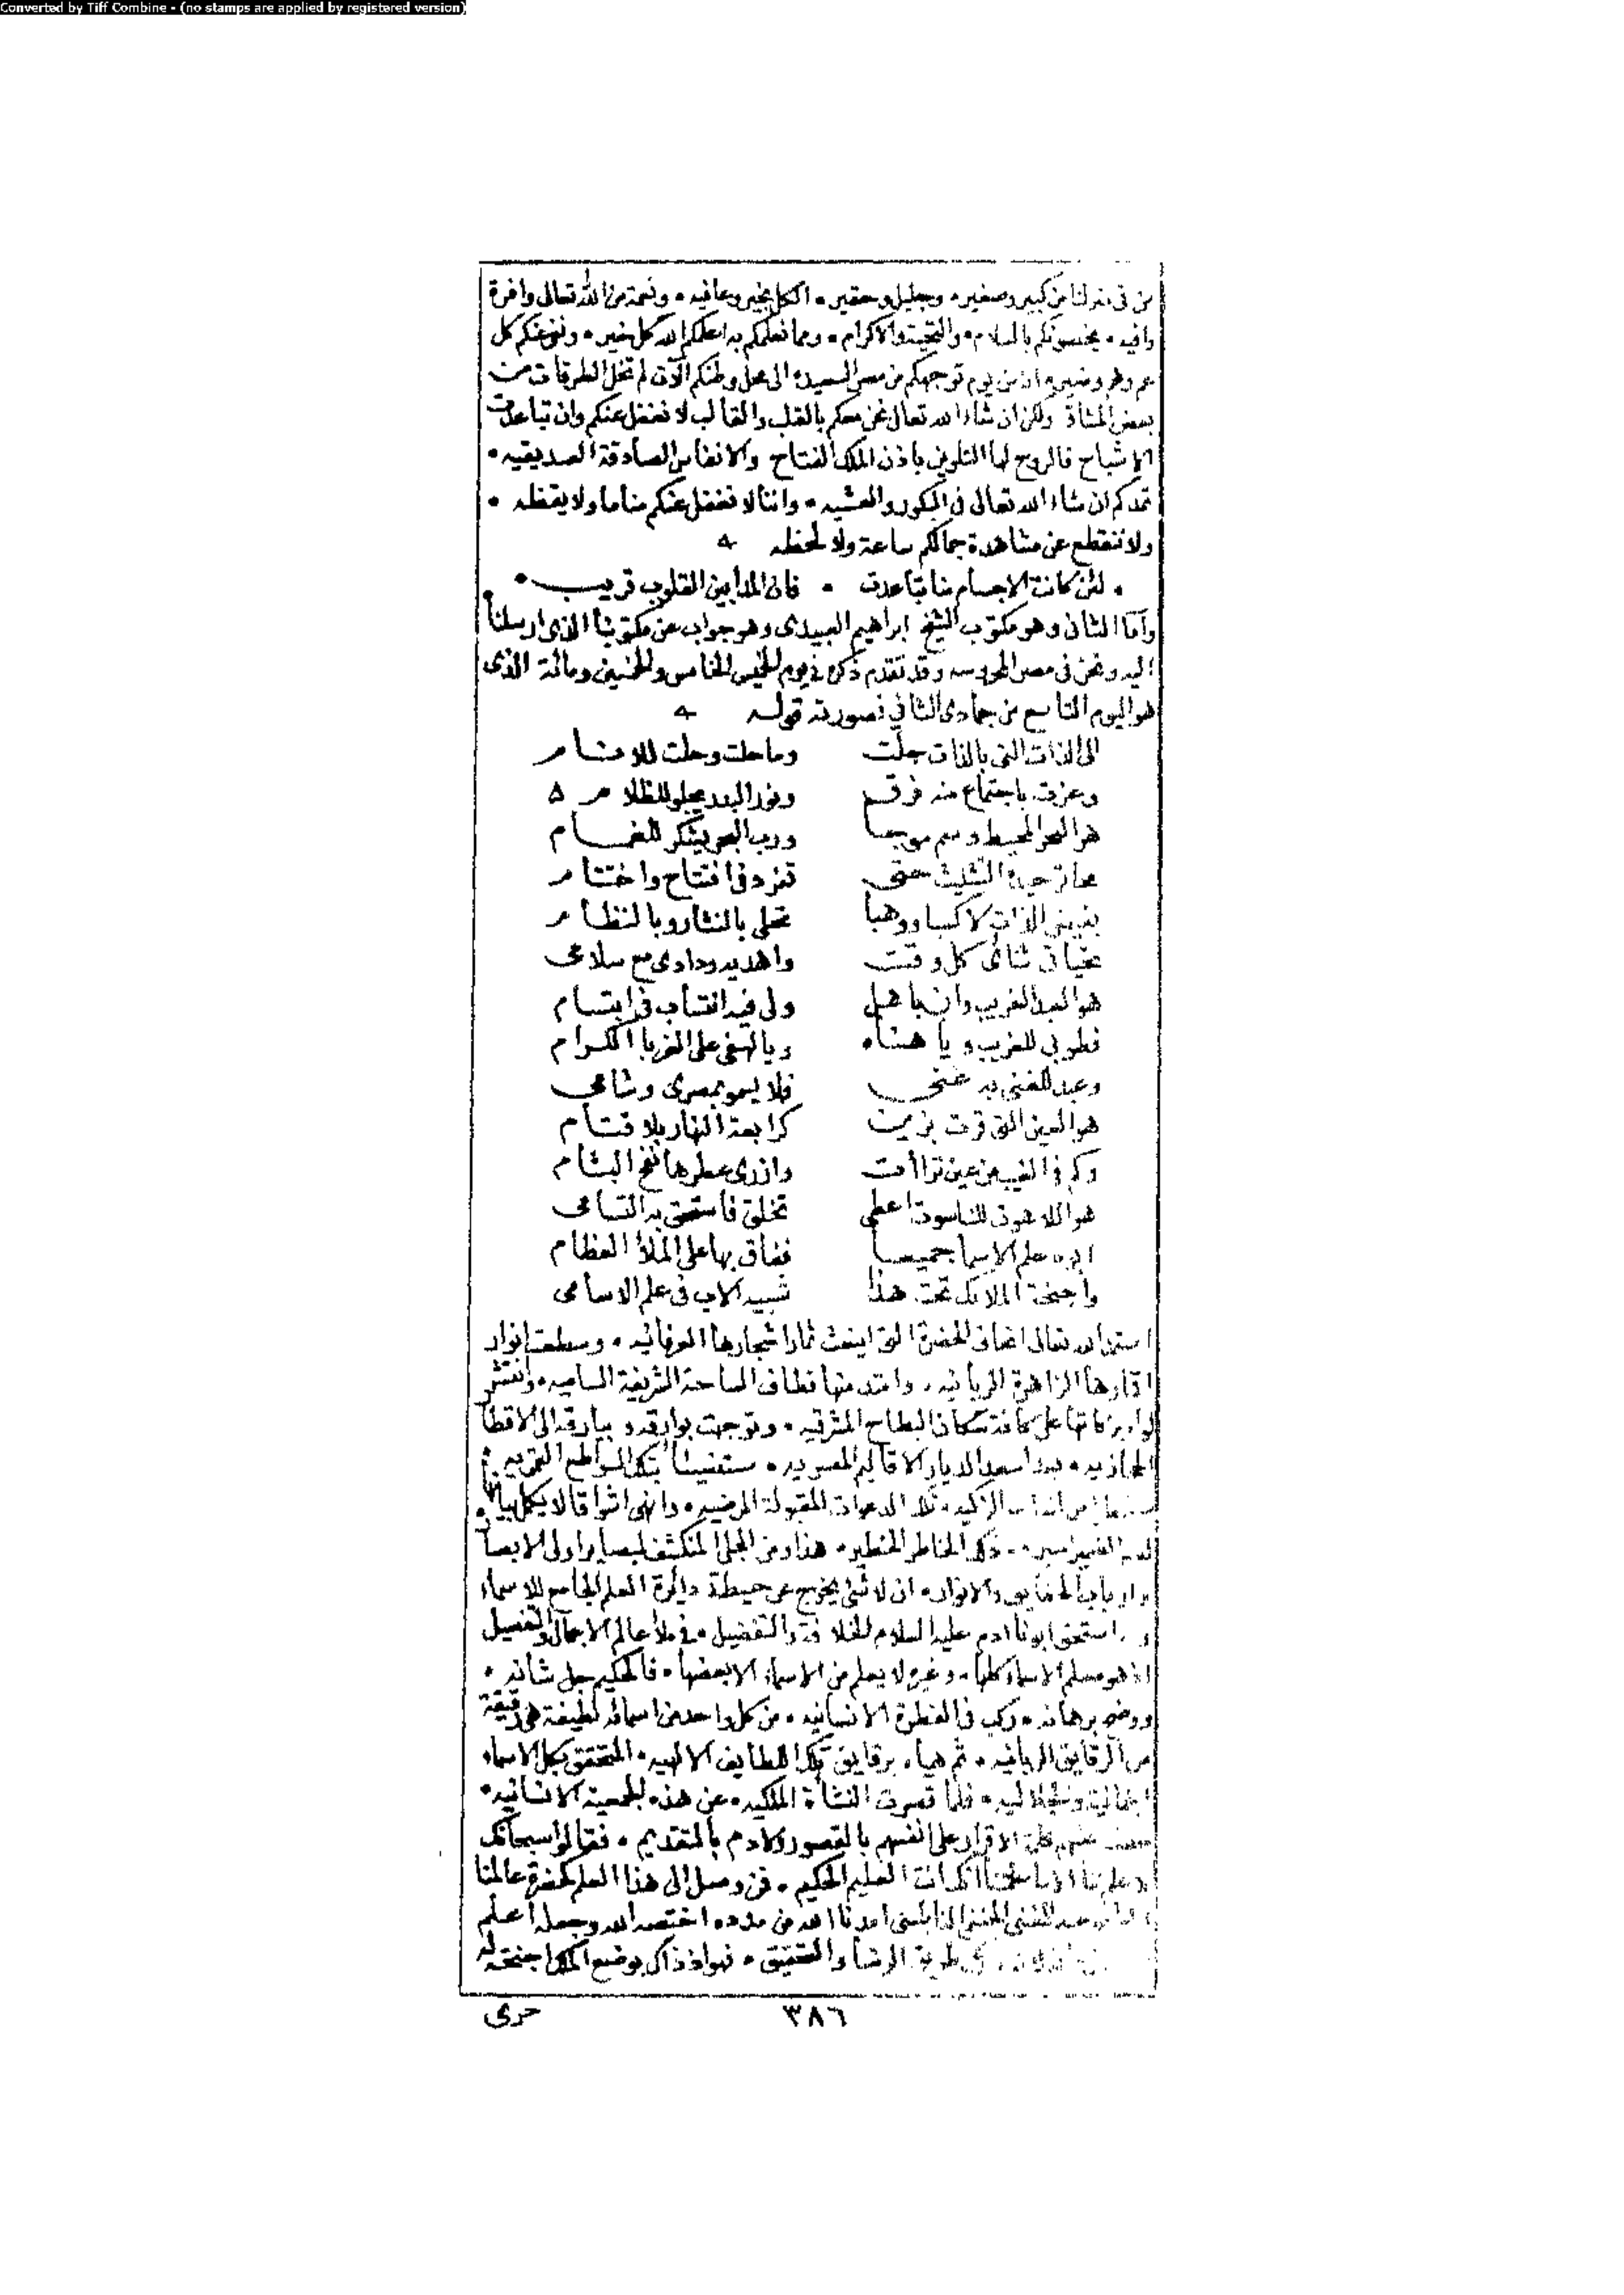 Converted by Tiff Combine - (no stamps are applied by registered version)
من في منزلنا من كبير وصغير • وجليل وحقير • الكل بخير وعافيه • ونعمة من الله تعالى وافرة
وافيه • يخصونكم بالسلام • والتحية والاكرام • ومما نعلمكم به اعلمكم الله كل خير • ونفى عنكم كل
هم وهم وضير • ان من يوم توجهكم من مصر السعيده الى محل وطنكم الآن لم تخل الطرقات من
بعض المشاة ولكن ان شاء الله تعالى نحن معكم بالقلب والقالب لا نغفل عنكم وان تباعدت
الاشباح فالروح لها التلوين باذن الملك الفتاح والانفاس الصادقة الصديقيه •
تمدكم ان شاء الله تعالى في البكور والعشيه • واننا لا نغفل عنكم مناما ولا يقظه •
ولا ننقطع عن مشاهدة جمالكم ساعة ولا لحظه
• لئن كانت الاجسام منا تباعدت • فان المدا بين القلوب قريب •
واما الثاني وهو مكتوب الشيخ ابراهيم العبيدى وهو جواب عن مكتوبنا الذى ارسلنا
اليه ونحن في مصر المحروسه وقد تقدم ذكره في يوم الخميس الخامس والخمسين ومائة الذى
هو اليوم التاسع من جمادى الثاني فصورته قوله
الى الذات التي بالذات جلت وما حلت وحلت للانام
وعزت باجتماع منه فرق ونور البدر يجلو للظلام
هو البحر المحيط وسم موجا ورب البحر يشكر للغمام
محا توحيده التثليث حتى تفرد في افتتاح واختتام
بفيض الذات لا كسبا ووهبا تحلى بالنثار وبالنظام
تحياتي ثنائى كل وقت واهديه ودادى مع سلامى
هو العبد الغريب وان باهل ولى فيه انتساب في ابتسام
فطوبى للغريب ويا هناه ويا لهفى على الغربا الكرام
وعبد للغنى به غنى فلا يسمو بمصرى وشامى
هو العين التي قرت بزين كرابعة النهار بلا قتام
وكم في الغيب من عين تراات وازرى عطرها نفح البشام
هو اللاهوت للناسوت اعطى تخلق فاستحق به التسامى
ابوه علم الاسما جميعا ففاق بها على الملأ العظام
واجنحة الملائك تحت هذا شبيه الاب في علم الاسامى
استمد الله تعالى اغصان الحضرة التي اينعت ثمار اشجارها العرفانيه • وسطعت انوار
اقمارها الزاهرة الربانيه • وامتد منها قطاف الساحة الشريفة الساميه • وانتشر
لواء بركاتها على كافة سكان البطاح المشرقيه • وتوجهت بوارقه وبيارقه الى الاقطار
الحجازيه • بعد اسعد الديار الاقاليم المصريه • مستفيضا بتلك المواطع القمريه •
الزكيه • تلك الدعوات المقبولة المرضيه • وانهى اشواقا لا يكمل بيانها
الخاطر الخطير • هذا ومن الجلى المنكشف لبصاير اولى الابصار
وارباب الحقايق والانوار • ان لا شئ يخرج عن حيطة دائرة العلم الجامع للاسماء
استحق ابونا ادم عليه السلام الخلافة والتفضيل • في ملأ عالم الاجمال والتفصيل
اذ هو معلم الاسماء كلها • وغيره لا يعلم من الاسماء الا بعضها • فالحكيم جل شانه •
ووضح برهانه • ركب في الفطرة الانسانيه • من كل واحد من اسمائه لطيفة هي رقيقة
من الرقايق الربانيه • ثم هيأه برقايق تلك اللطايف الالهيه • المتحقق بكل الاسماء
الجمالية والجلاليه • فلما قصرت النشأة الملكيه • عن هذه الجمعية الانسانيه •
الاقرار على انفسهم بالقصور ولادم بالتقديم • فقالوا سبحانك
لا علم لنا الا ما علمتنا انك انت العليم الحكيم • فمن وصل الى هذا العلم كحضرة عالمنا
عبد الغني الحنفي النابلسي امدنا الله من مدده اختصه الله وجعله اعلم
طريق الرشاد والتحقيق • فهو اذ ذاك بوضع الملك اجنحته له
٣٨٦
حرى